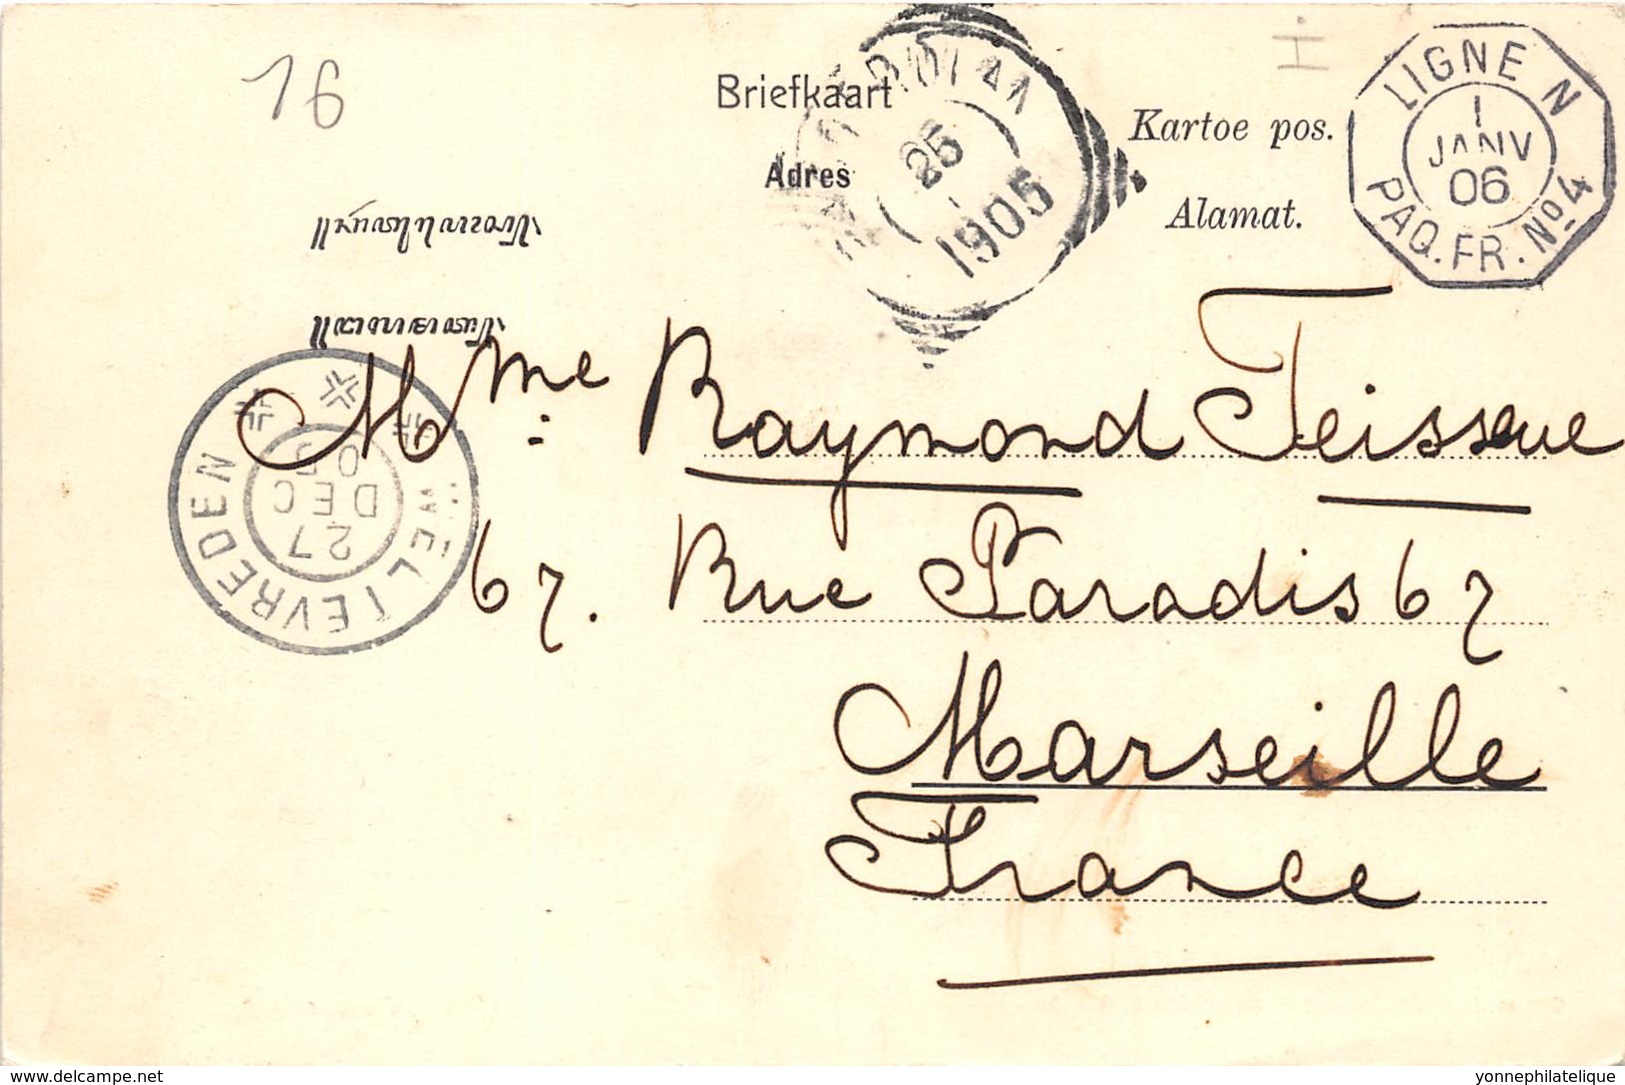 16
Briefkaart
Adres
Kartoe pos.
Alamat.
LIGNE N
1
JANV
06
PAQ. FR. Nº 4
25
1905
WELTEVREDEN
27
DEC
05
Mme Raymond Teisseire
67. Rue Paradis 67
Marseille
France
delcampe.net
yonnephilatelique